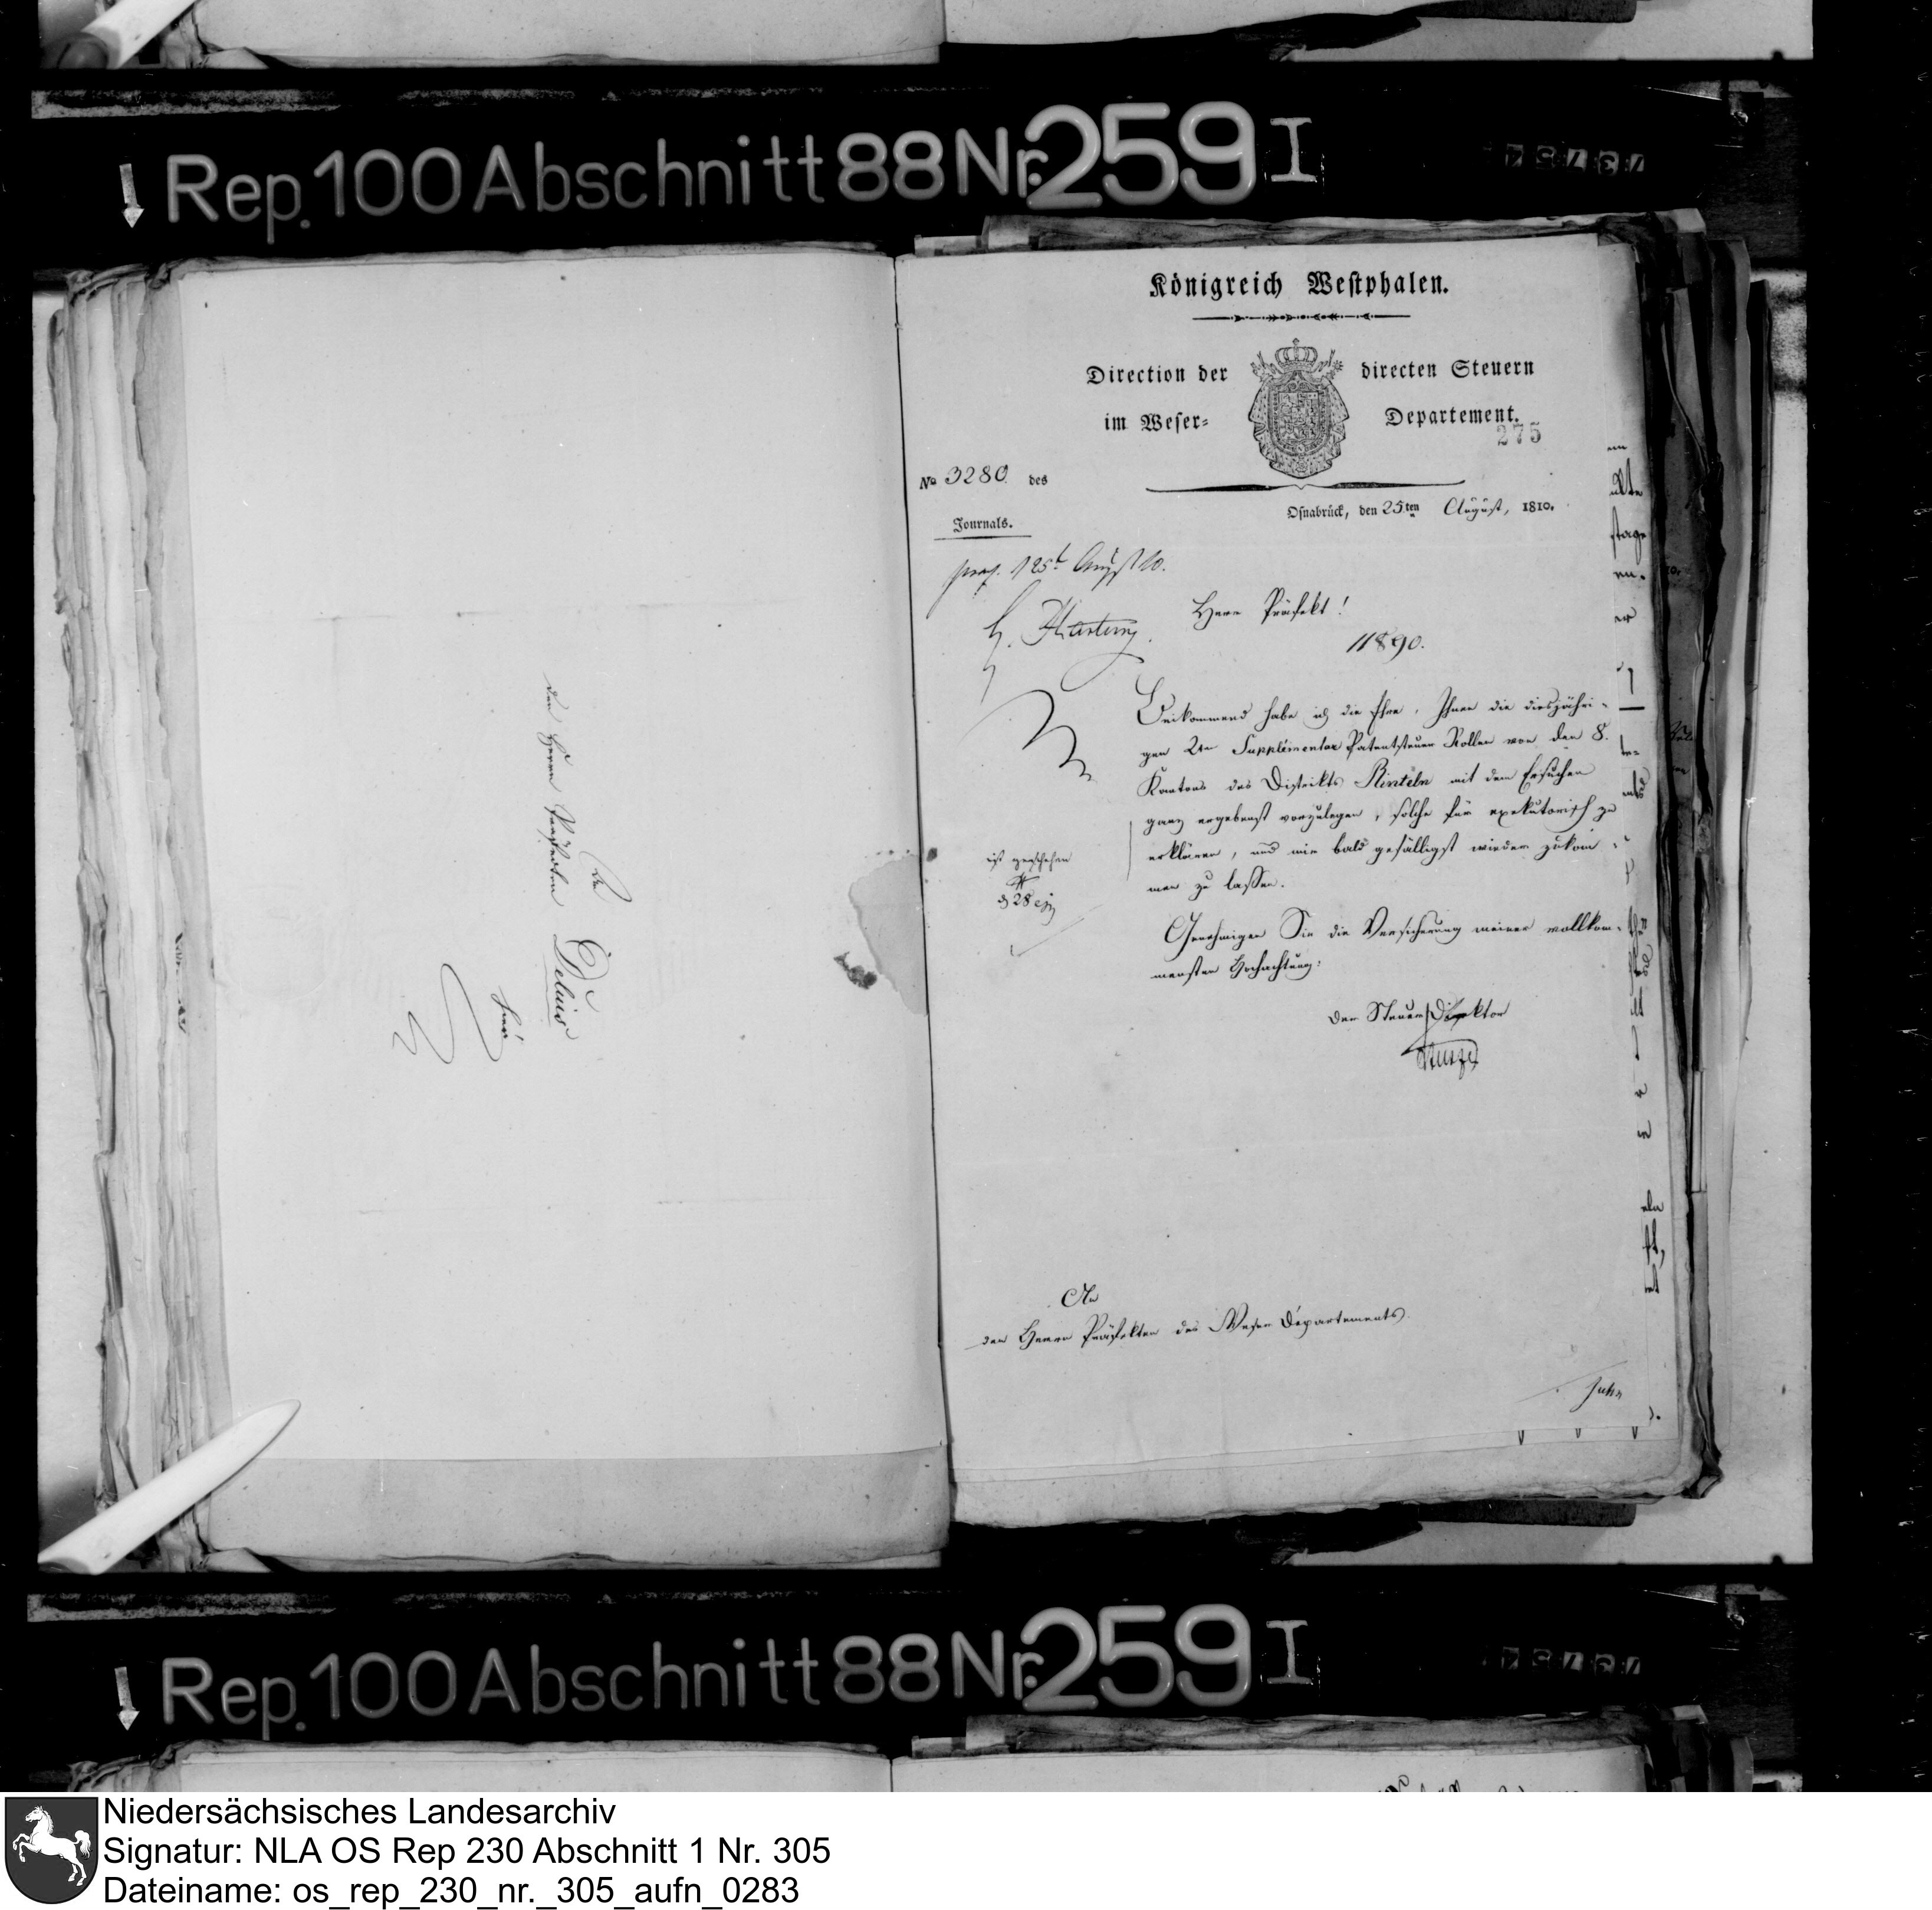 Rep. 100 Abschnitt 88 Nr. 259 I
An
den Herrn Präfecten Delius
hier
Königreich Westphalen.
Direction der directen Steuern
im Weser- Departement.
275
No 3280 des
Journals.
Osnabrück, den 25ten August, 1810.
H. Hartung.
Herr Präfekt!
11890.
Beikommend habe ich die Ehre, Ihnen die diesjähri-
gen 2ten Supplementar Patentsteuer Rollen von den 8.
Kantons des Distrikts Rinteln mit dem Ersuchen
ganz ergebenst vorzulegen, solche für exekutorisch zu
erklären, und mir bald gefälligst wieder zukom-
men zu lassen.
ist geschehen
d 28 ej
Genehmigen Sie die Versicherung meiner vollkom-
mensten Hochachtung:
Der Steuer Direktor
An
den Herrn Präfekten des Weser Departements
Rep. 100 Abschnitt 88 Nr. 259 I
Niedersächsisches Landesarchiv
Signatur: NLA OS Rep 230 Abschnitt 1 Nr. 305
Dateiname: os_rep_230_nr._305_aufn_0283